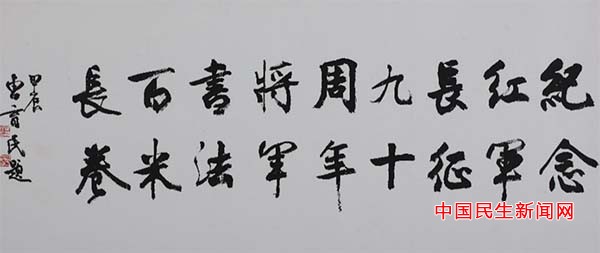 紀念
紅軍
長征
九十
周年
將軍
書法
百米
長卷
甲辰
民題
中国民生新闻网